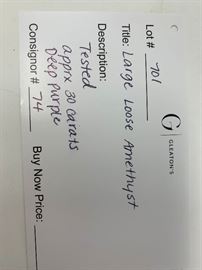 G
GLEATON'S
Lot # 701
Title: Large Loose Amethyst
Description:
Tested
apprx 30 carats
Deep Purple
Consignor # 74 Buy Now Price: